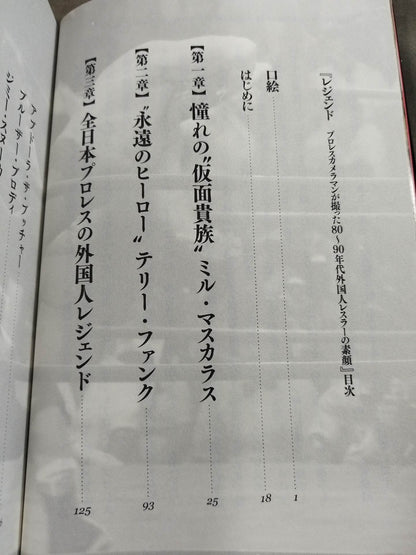 『レジェンド　プロレスカメラマンが撮った80〜90年代外国人レスラーの素顔』目次
口絵 1
はじめに 18
【第一章】 憧れの〝仮面貴族〟ミル・マスカラス 25
【第二章】 〝永遠のヒーロー〟テリー・ファンク 93
【第三章】 全日本プロレスの外国人レジェンド 125
アブドーラ・ザ・ブッチャー
ブルーザー・ブロディ